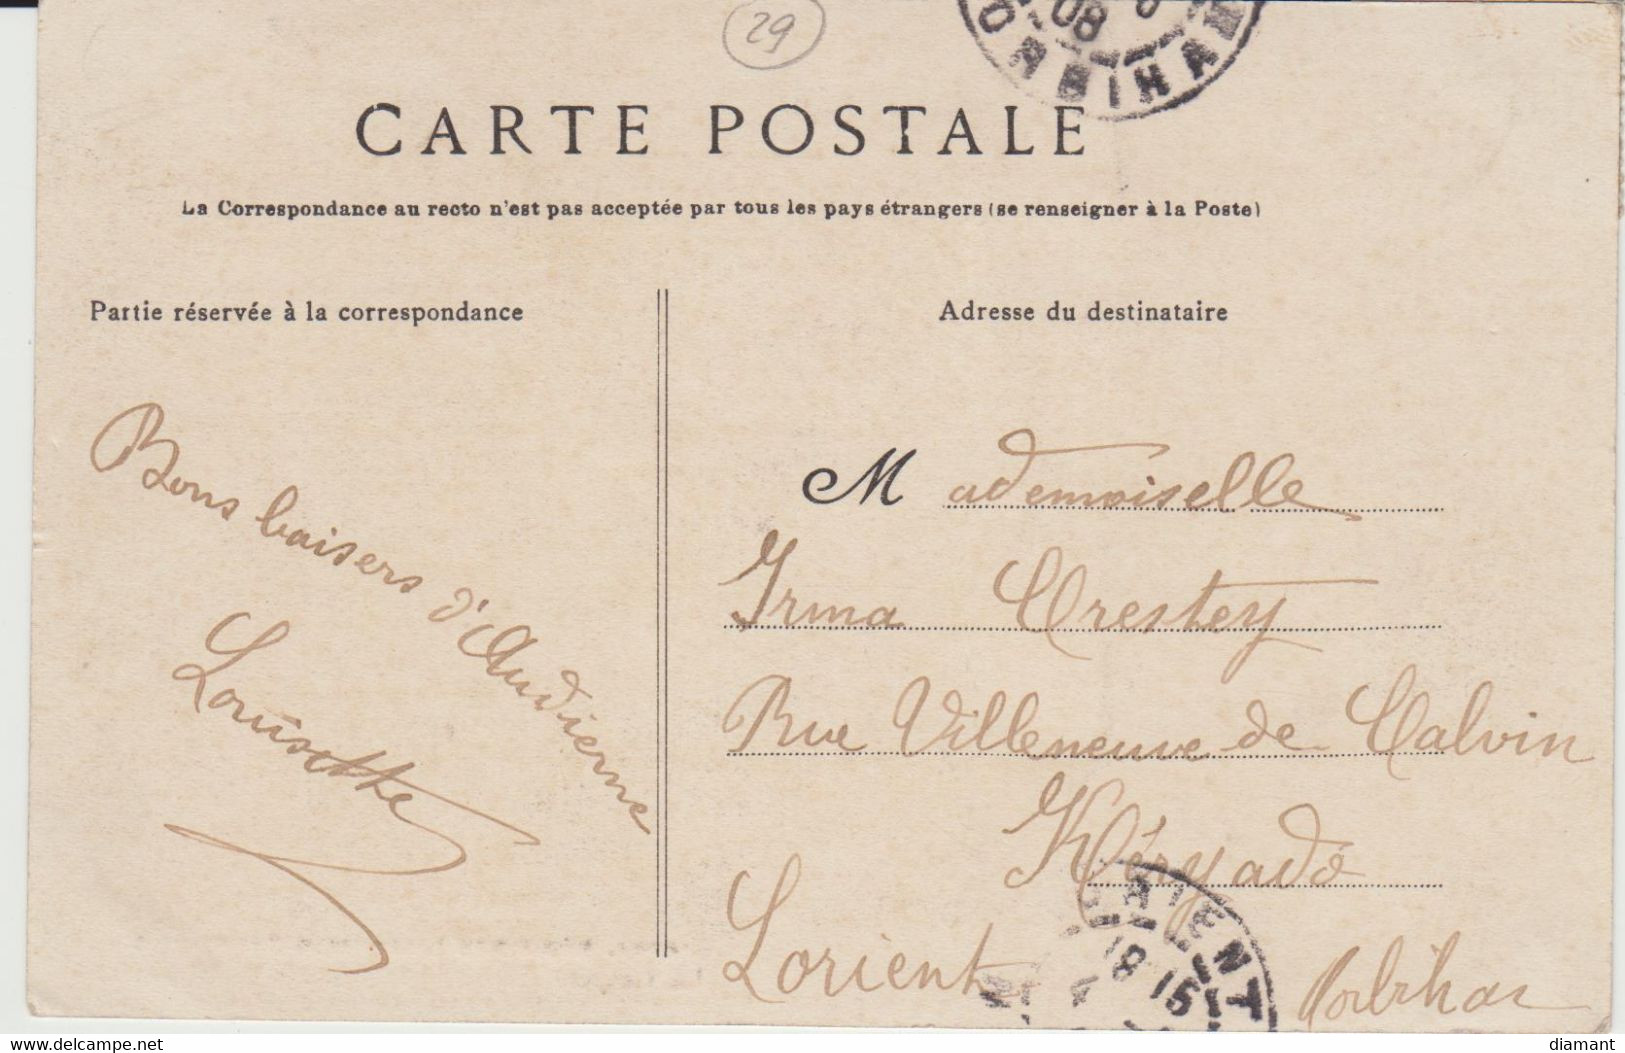 29
08
MORBIHAN
CARTE POSTALE
La Correspondance au recto n'est pas acceptée par tous les pays étrangers (se renseigner à la Poste)
Partie réservée à la correspondance
Adresse du destinataire
Bons baisers d'Audierne
Louisette
Mademoiselle
Irma Crestey
Rue Villeneuve de Calvin
Kéryado
Lorient Morbihan
LORIENT
18
15
www.delcampe.net
diamant